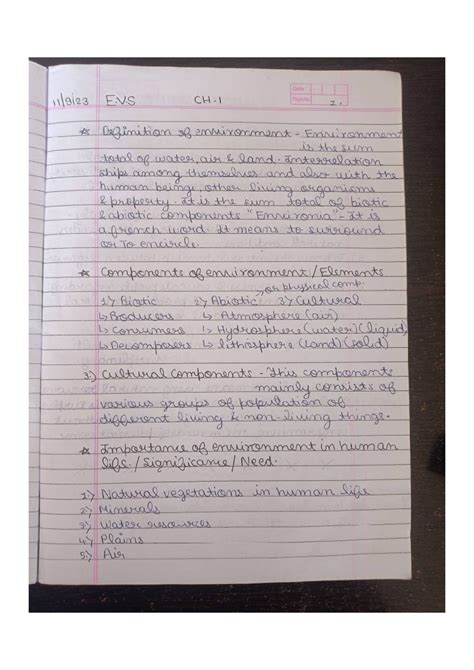 Date
Page No. 1.
11/9/23 EVS CH-1
☆ Definition of environment - Environment
is the sum
total of water, air & land. Interrelation
ships among themselves and also with the
human being, other living organisms
& property. It is the sum total of biotic
& abiotic components "Environia" - It is
a french word. It means to surround
or To encircle.
☆ Components of environment / Elements
→ or physical comp.
1) Biotic 2) Abiotic 3) Cultural
↳ Producers ↳ Atmosphere (air)
↳ Consumers ↳ Hydrosphere (water) (liquid)
↳ Decomposers ↳ lithosphere (land) (solid)
3) Cultural components - This components
mainly consists of
various groups of population of
different living & non-living things.
☆ Importance of environment in human
life. / Significance / Need.
1) Natural vegetations in human life
2) Minerals
3) Water resources
4) Plains
5) Air